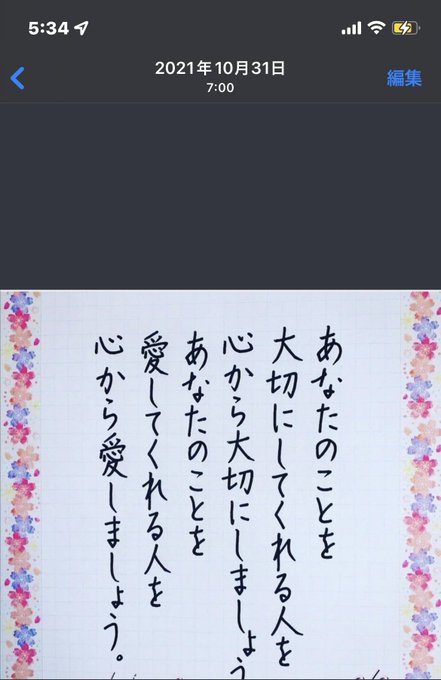 5:34
2021年10月31日
7:00
編集
あなたのことを
大切にしてくれる人を
心から大切にしましょう
あなたのことを
愛してくれる人を
心から愛しましょう。